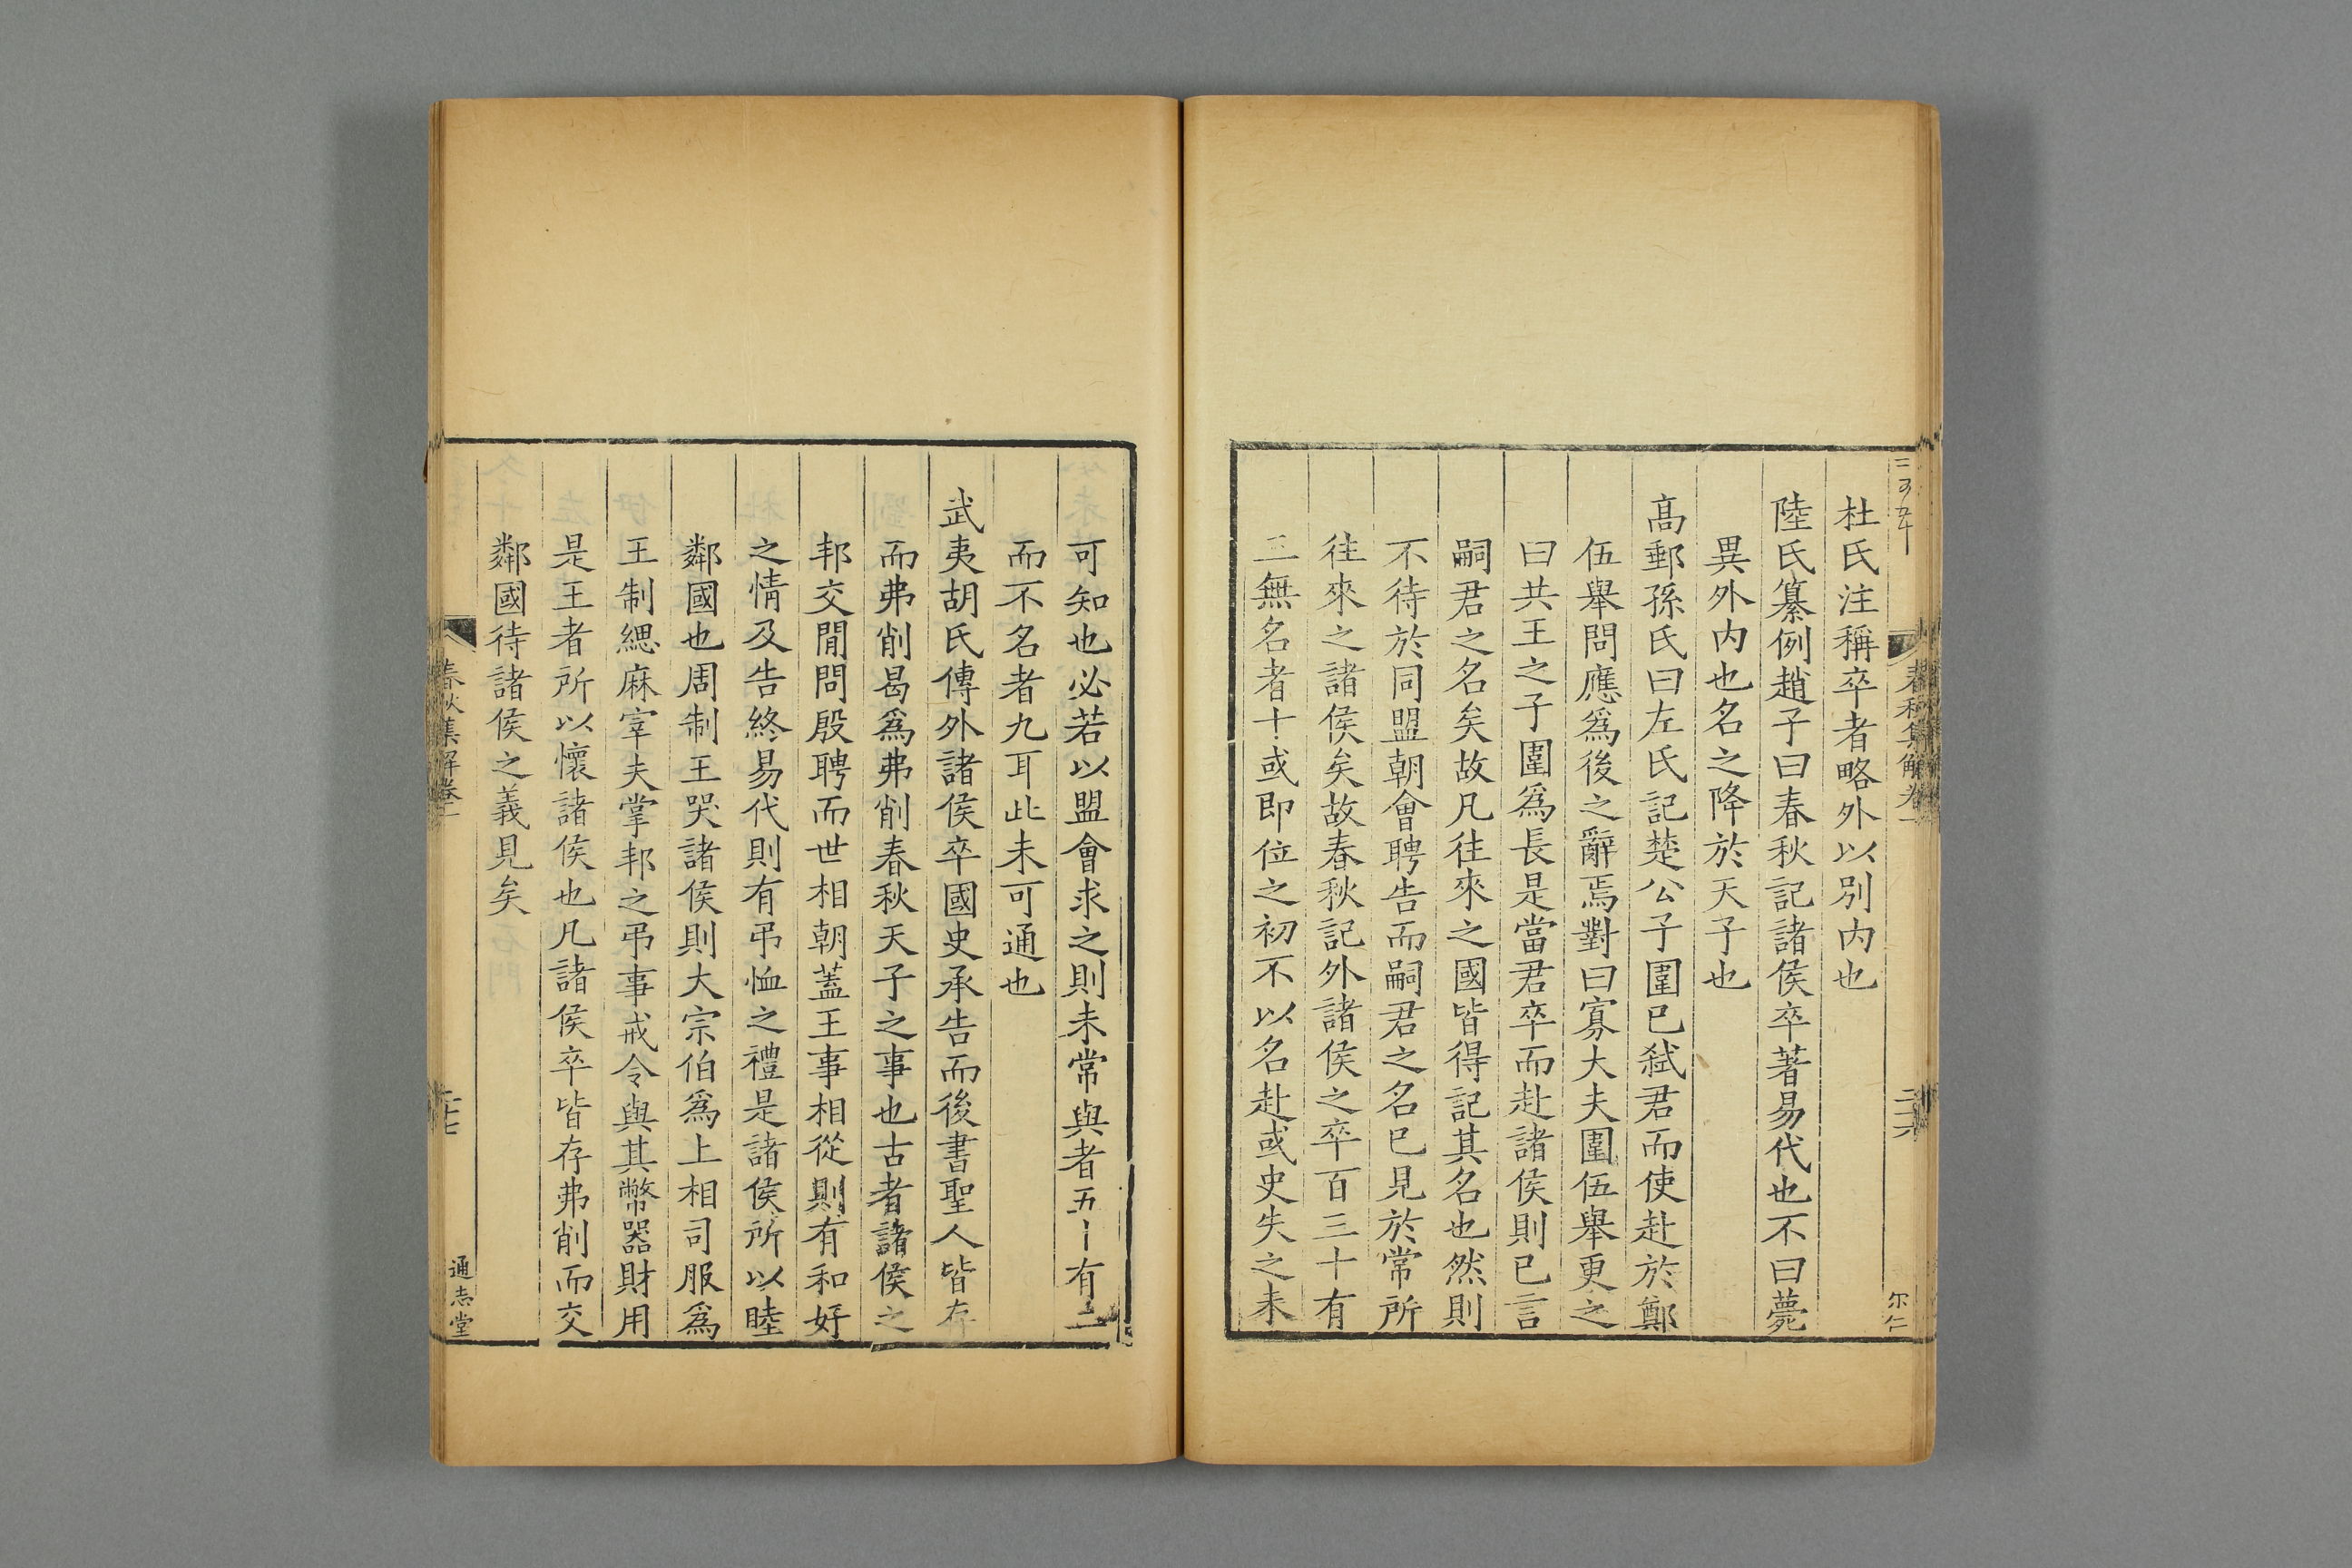 杜氏注稱卒者略外以別內也
陸氏纂例趙子曰春秋記諸侯卒著易代也不曰薨
異外內也名之降於天子也
高郵孫氏曰左氏記楚公子圍已弒君而使赴於鄭
伍舉問應爲後之辭焉對曰寡大夫圍伍舉更之
曰共王之子圍爲長是當君卒而赴諸侯則已言
嗣君之名矣故凡往來之國皆得記其名也然則
不待於同盟朝會聘告而嗣君之名已見於常所
往來之諸侯矣故春秋記外諸侯之卒百三十有
三無名者十或即位之初不以名赴或史失之未
春秋集解卷一
二十六
尔仁
可知也必若以盟會求之則未常與者五十有二
而不名者九耳此未可通也
武夷胡氏傳外諸侯卒國史承告而後書聖人皆存
而弗削曷爲弗削春秋天子之事也古者諸侯之
邦交閒問殷聘而世相朝蓋王事相從則有和好
之情及告終易代則有弔恤之禮是諸侯所以睦
鄰國也周制王哭諸侯則大宗伯爲上相司服爲
王制緦麻宰夫掌邦之弔事戒令與其幣器財用
是王者所以懷諸侯也凡諸侯卒皆存弗削而交
鄰國待諸侯之義見矣
春秋集解卷一
二十七
通志堂